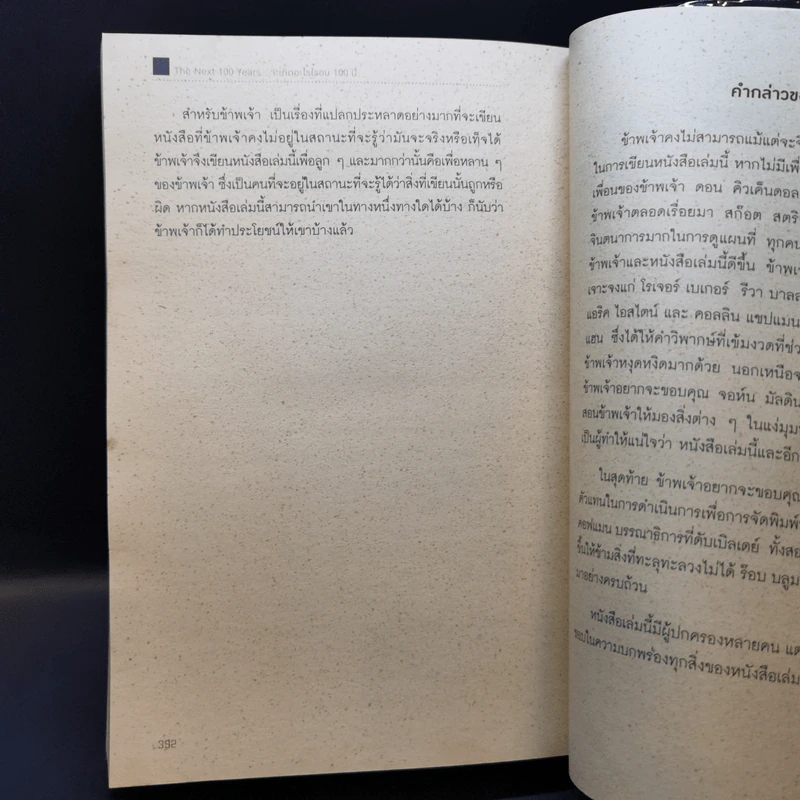 The Next 100 Years 100 ปี
สำหรับข้าพเจ้า เป็นเรื่องที่แปลกประหลาดอย่างมากที่จะเขียน
หนังสือที่ข้าพเจ้าคงไม่อยู่ในสถานะที่จะรู้ว่ามันจะจริงหรือเท็จได้
ข้าพเจ้าจึงเขียนหนังสือเล่มนี้เพื่อลูก ๆ และมากกว่านั้นคือเพื่อหลาน ๆ
ของข้าพเจ้า ซึ่งเป็นคนที่จะอยู่ในสถานะที่จะรู้ได้ว่าสิ่งที่เขียนนั้นถูกหรือ
ผิด หากหนังสือเล่มนี้สามารถนำเขาในทางหนึ่งทางใดได้บ้าง ก็นับว่า
ข้าพเจ้าก็ได้ทำประโยชน์ให้เขาบ้างแล้ว
392
คำกล่าวขอ
ข้าพเจ้าคงไม่สามารถแม้แต่จะจิ
ในการเขียนหนังสือเล่มนี้ หากไม่มีเพื่
เพื่อนของข้าพเจ้า ดอน คิวเค็นดอล
ข้าพเจ้าตลอดเรื่อยมา สก๊อต สตริ
จินตนาการมากในการดูแผนที่ ทุกคน
ข้าพเจ้าและหนังสือเล่มนี้ดีขึ้น ข้าพเ
เจาะจงแก่ โรเจอร์ เบเกอร์ รีวา บาลล
แอริค ไอสไตน์ และ คอลลิน แชปแมน
แฮน ซึ่งได้ให้คำวิพากษ์ที่เข้มงวดที่ช่ว
ข้าพเจ้าหงุดหงิดมากด้วย นอกเหนือจ
ข้าพเจ้าอยากจะขอบคุณ จอห์น มัลดิน
สอนข้าพเจ้าให้มองสิ่งต่าง ๆ ในแง่มุม
เป็นผู้ทำให้แน่ใจว่า หนังสือเล่มนี้และอีก
ในสุดท้าย ข้าพเจ้าอยากจะขอบคุณ
ตัวแทนในการดำเนินการเพื่อการจัดพิมพ์
คอฟแมน บรรณาธิการที่ดับเบิลเดย์ ทั้งสอ
ขึ้นให้ข้ามสิ่งที่ทะลุทะลวงไม่ได้ ร๊อบ บลูม
มาอย่างครบถ้วน
หนังสือเล่มนี้มีผู้ปกครองหลายคน แต่
ชอบในความบกพร่องทุกสิ่งของหนังสือเล่ม